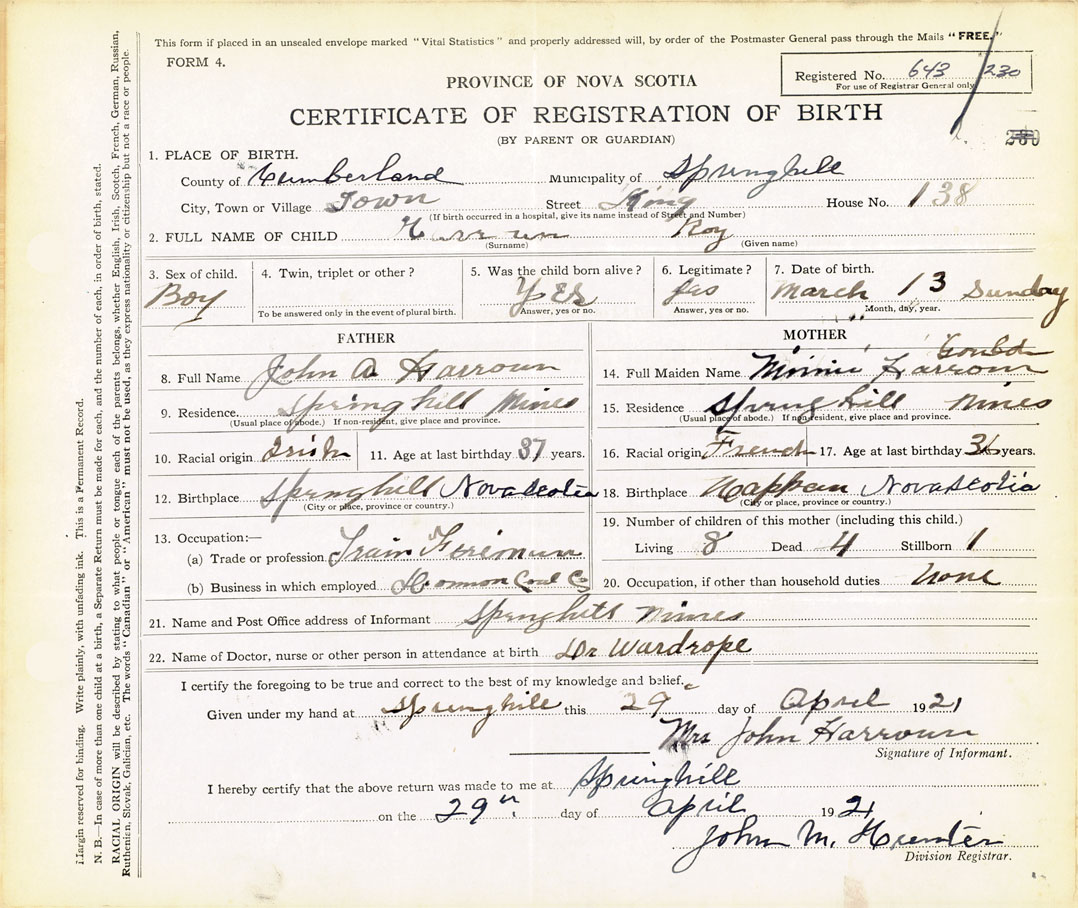 This form if placed in an unsealed envelope marked "Vital Statistics" and properly addressed will, by order of the Postmaster General pass through the Mails "FREE."
FORM 4.
Registered No. 643 230
For use of Registrar General only
PROVINCE OF NOVA SCOTIA
CERTIFICATE OF REGISTRATION OF BIRTH
(BY PARENT OR GUARDIAN)
1. PLACE OF BIRTH.
County of Cumberland Municipality of Springhill
City, Town or Village Town Street King House No. 138
(If birth occurred in a hospital, give its name instead of Street and Number)
2. FULL NAME OF CHILD Roy
(Surname) (Given name)
3. Sex of child. 4. Twin, triplet or other? 5. Was the child born alive? 6. Legitimate? 7. Date of birth.
Boy YES yes March 13 Sunday
To be answered only in the event of plural birth. Answer, yes or no. Answer, yes or no. Month, day, year.
FATHER
8. Full Name John A Harroun
9. Residence. Springhill Mines
(Usual place of abode.) If non-resident, give place and province.
10. Racial origin Irish 11. Age at last birthday 37 years.
12. Birthplace Springhill Nova Scotia
(City or place, province or country.)
13. Occupation:—
(a) Trade or profession Train
(b) Business in which employed Coal Co
MOTHER
14. Full Maiden Name Minnie Harroun
15. Residence Springhill Mines
(Usual place of abode.) If non-resident, give place and province.
16. Racial origin French 17. Age at last birthday years.
18. Birthplace Nappan Nova Scotia
(City or place, province or country.)
19. Number of children of this mother (including this child.)
Living 8 Dead 4 Stillborn 1
20. Occupation, if other than household duties none
21. Name and Post Office address of Informant Springhill Mines
22. Name of Doctor, nurse or other person in attendance at birth Dr Wardrope
I certify the foregoing to be true and correct to the best of my knowledge and belief.
Given under my hand at Springhill this 29 day of April 1921
Mrs John Harroun
Signature of Informant.
I hereby certify that the above return was made to me at Springhill
on the 29th day of April 1921
John M. Hunter
Division Registrar.
Margin reserved for binding. Write plainly, with unfading ink. This is a Permanent Record.
N. B.—In case of more than one child at a birth, a Separate Return must be made for each, and the number of each, in order of birth, stated.
RACIAL ORIGIN will be described by stating to what people or tongue each of the parents belongs, whether English, Irish, Scotch, French, German, Russian,
Ruthenien, Slovak, Galician, etc. The words "Canadian" or "American" must not be used, as they express nationality or citizenship but not a race or people.